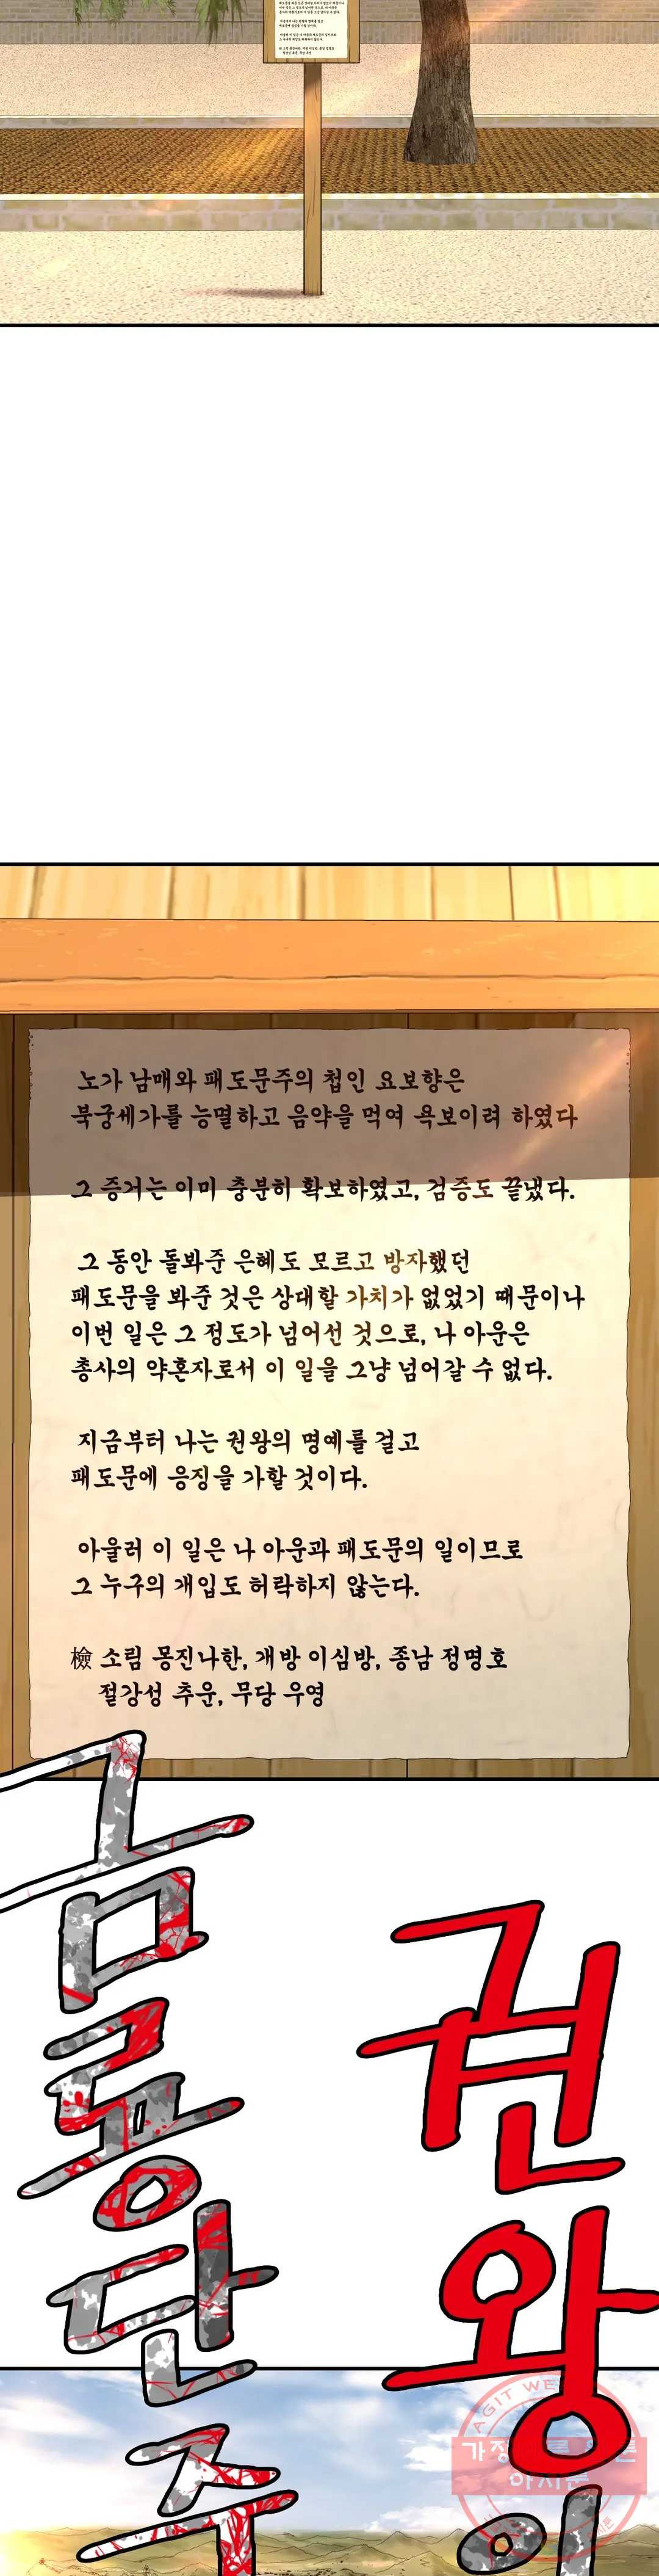 노가 남매와 패도문주의 첩인 요보향은
북궁세가를 능멸하고 음약을 먹여 욕보이려 하였다
그 증거는 이미 충분히 확보하였고, 검증도 끝냈다.
그 동안 돌봐준 은혜도 모르고 방자했던
패도문을 봐준 것은 상대할 가치가 없었기 때문이나
이번 일은 그 정도가 넘어선 것으로, 나 아운은
총사의 약혼자로서 이 일을 그냥 넘어갈 수 없다.
지금부터 나는 권왕의 명예를 걸고
패도문에 응징을 가할 것이다.
아울러 이 일은 나 아운과 패도문의 일이므로
그 누구의 개입도 허락하지 않는다.
檢 소림 몽진나한, 개방 이심방, 종남 정명호
절강성 추운, 무당 우영
권왕이
금룡단주
AGIT WE